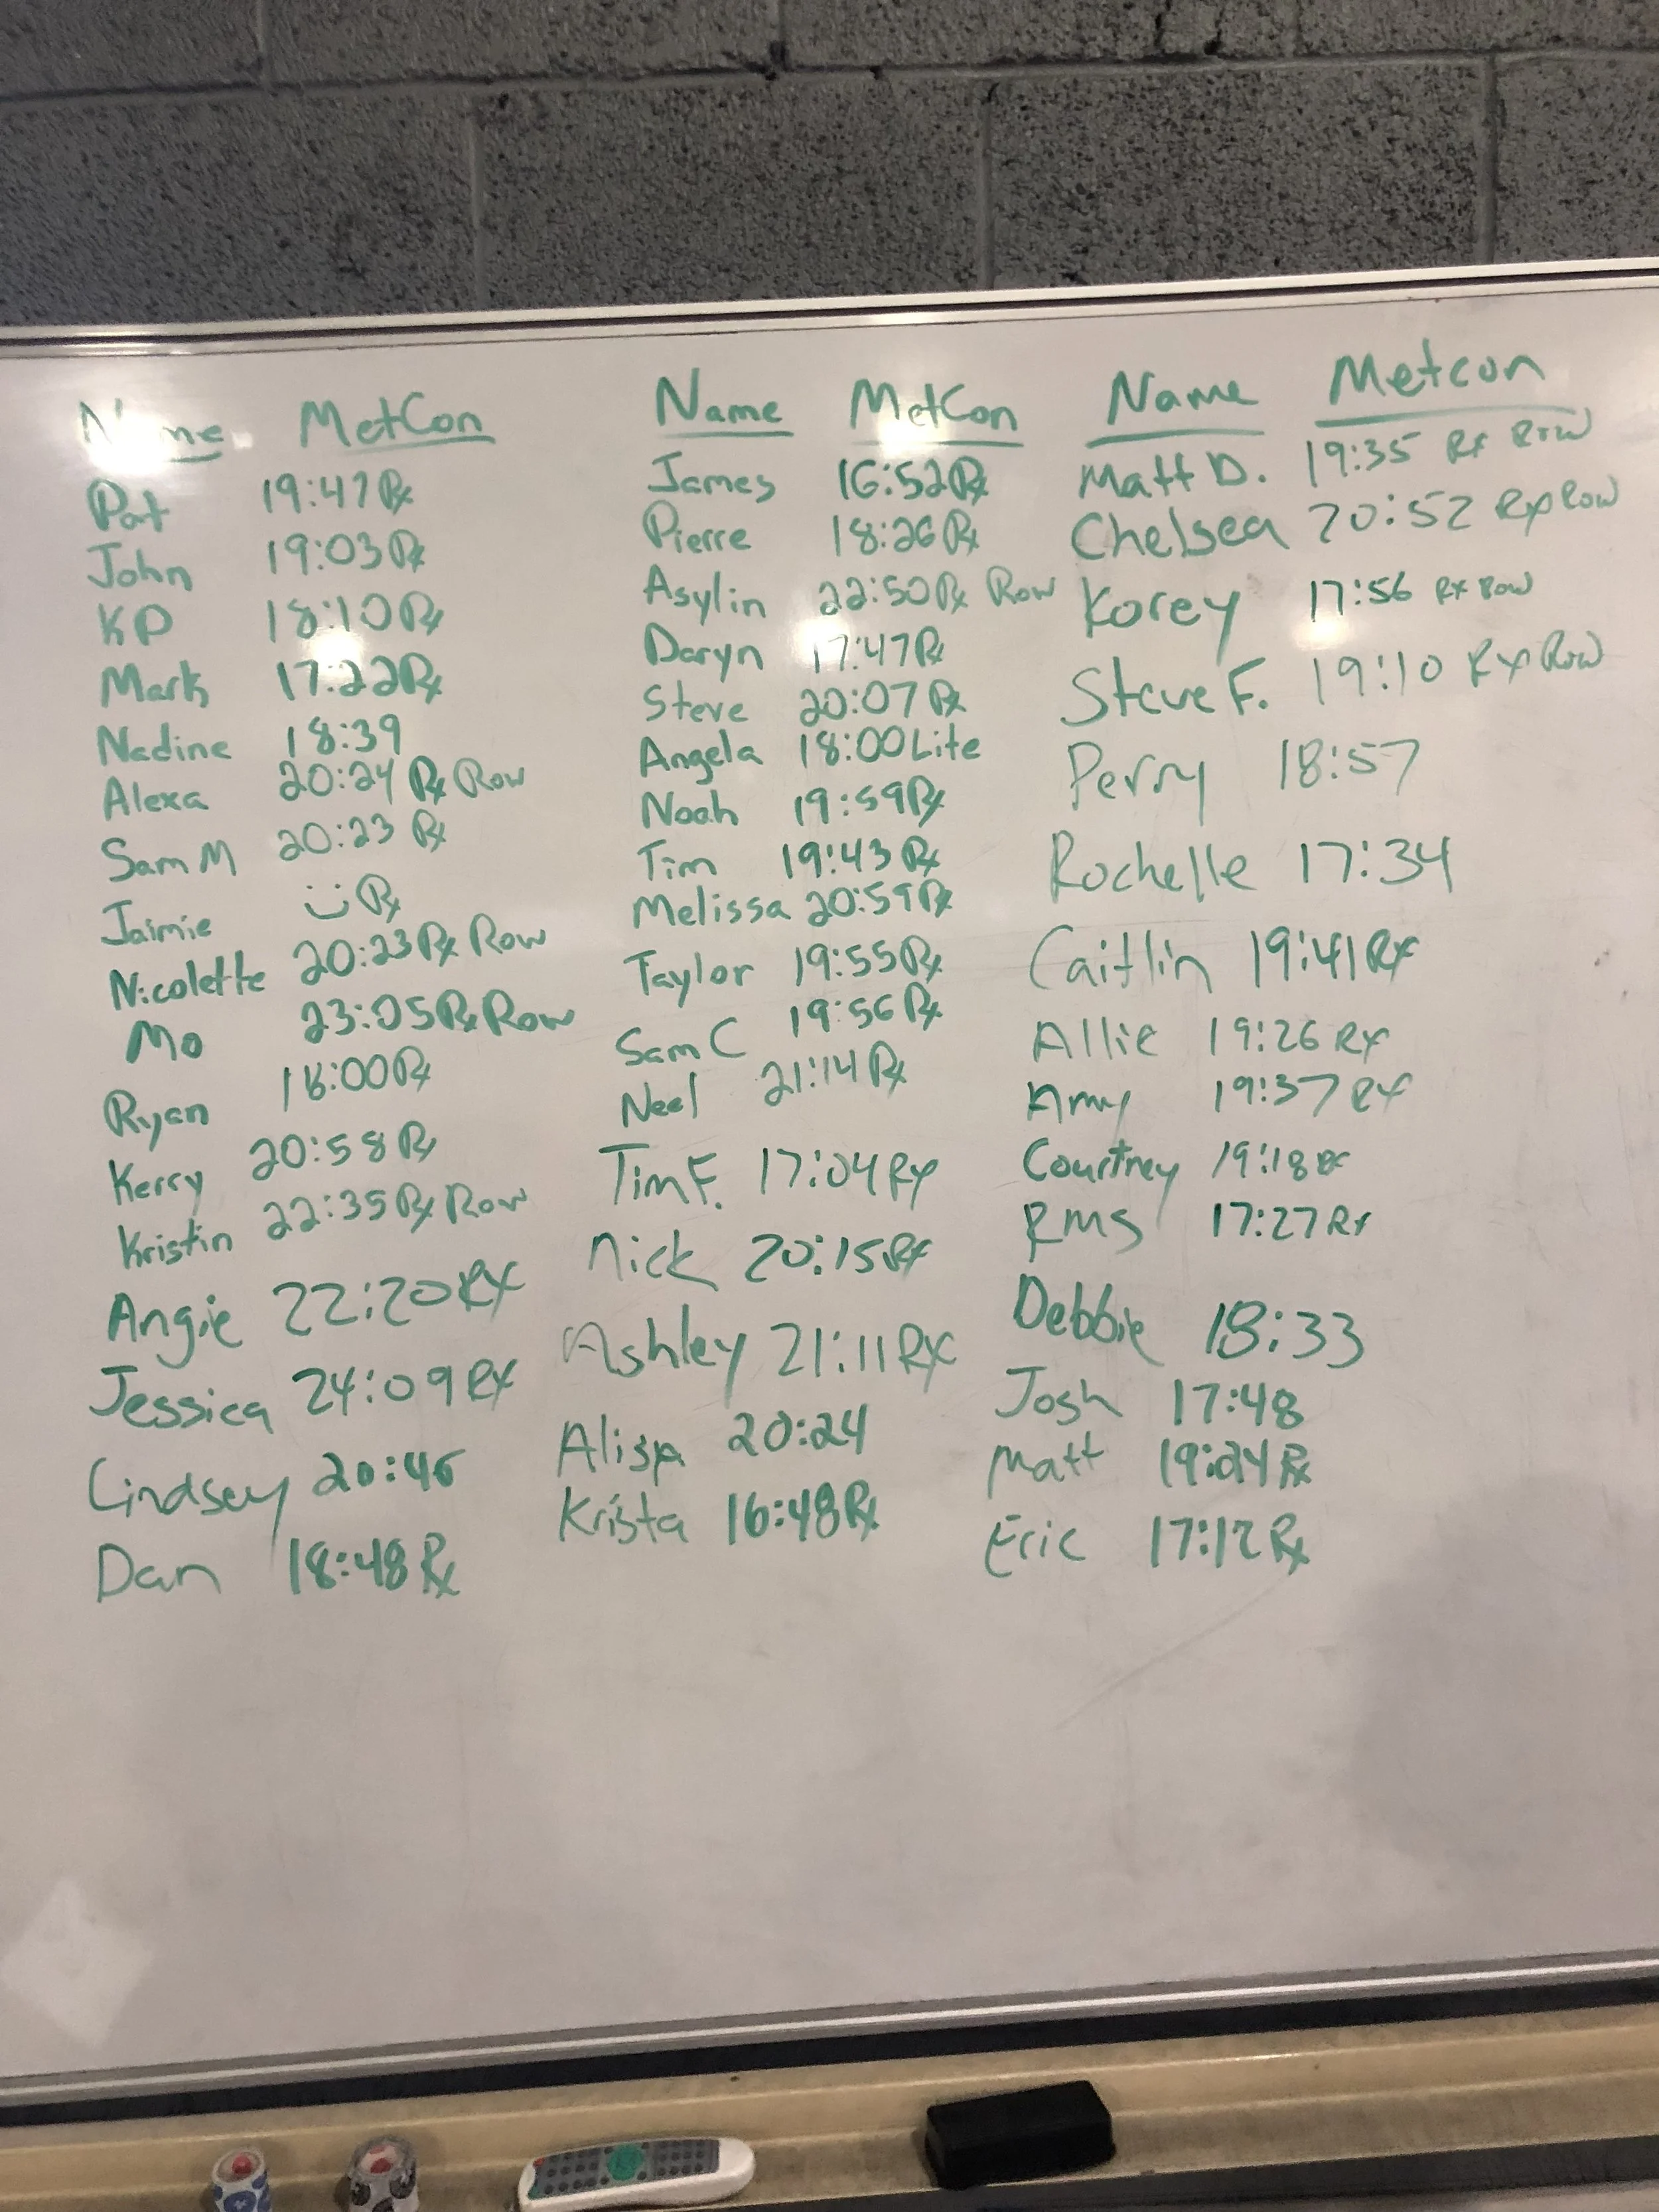 Name MetCon
Pat 19:47 Rx
John 19:03 Rx
KP 18:10 Rx
Mark 17:22 Rx
Nadine 18:39
Alexa 20:24 Rx Row
Sam M 20:23 Rx
Jaimie Rx
Nicolette 20:23 Rx Row
Mo 23:05 Rx Row
Ryan 18:00 Rx
Kerry 20:58 Rx
Kristin 22:35 Rx Row
Angie 22:20 RX
Jessica 24:09 RX
Lindsey 20:46
Dan 18:48 Rx
Name MetCon
James 16:52 Rx
Pierre 18:26 Rx
Asylin 22:50 Rx Row
Daryn 17:47 Rx
Steve 20:07 Rx
Angela 18:00 Lite
Noah 19:59 Rx
Tim 19:43 Rx
Melissa 20:59 Rx
Taylor 19:55 Rx
Sam C 19:56 Rx
Neel 21:14 Rx
Tim F. 17:04 Rx
Nick 20:15 Rx
Ashley 21:11 RX
Alissa 20:24
Krista 16:48 Rx
Name Metcon
Matt D. 19:35 Rx Row
Chelsea 20:52 Rx Row
Korey 17:56 Rx Row
Steve F. 19:10 Rx Row
Perry 18:57
Rochelle 17:34
Caitlin 19:41 Rx
Allie 19:26 Rx
Amy 19:37 Rx
Courtney 19:18 Rx
RMS 17:27 Rx
Debbie 18:33
Josh 17:48
Matt 19:24 Rx
Eric 17:12 Rx